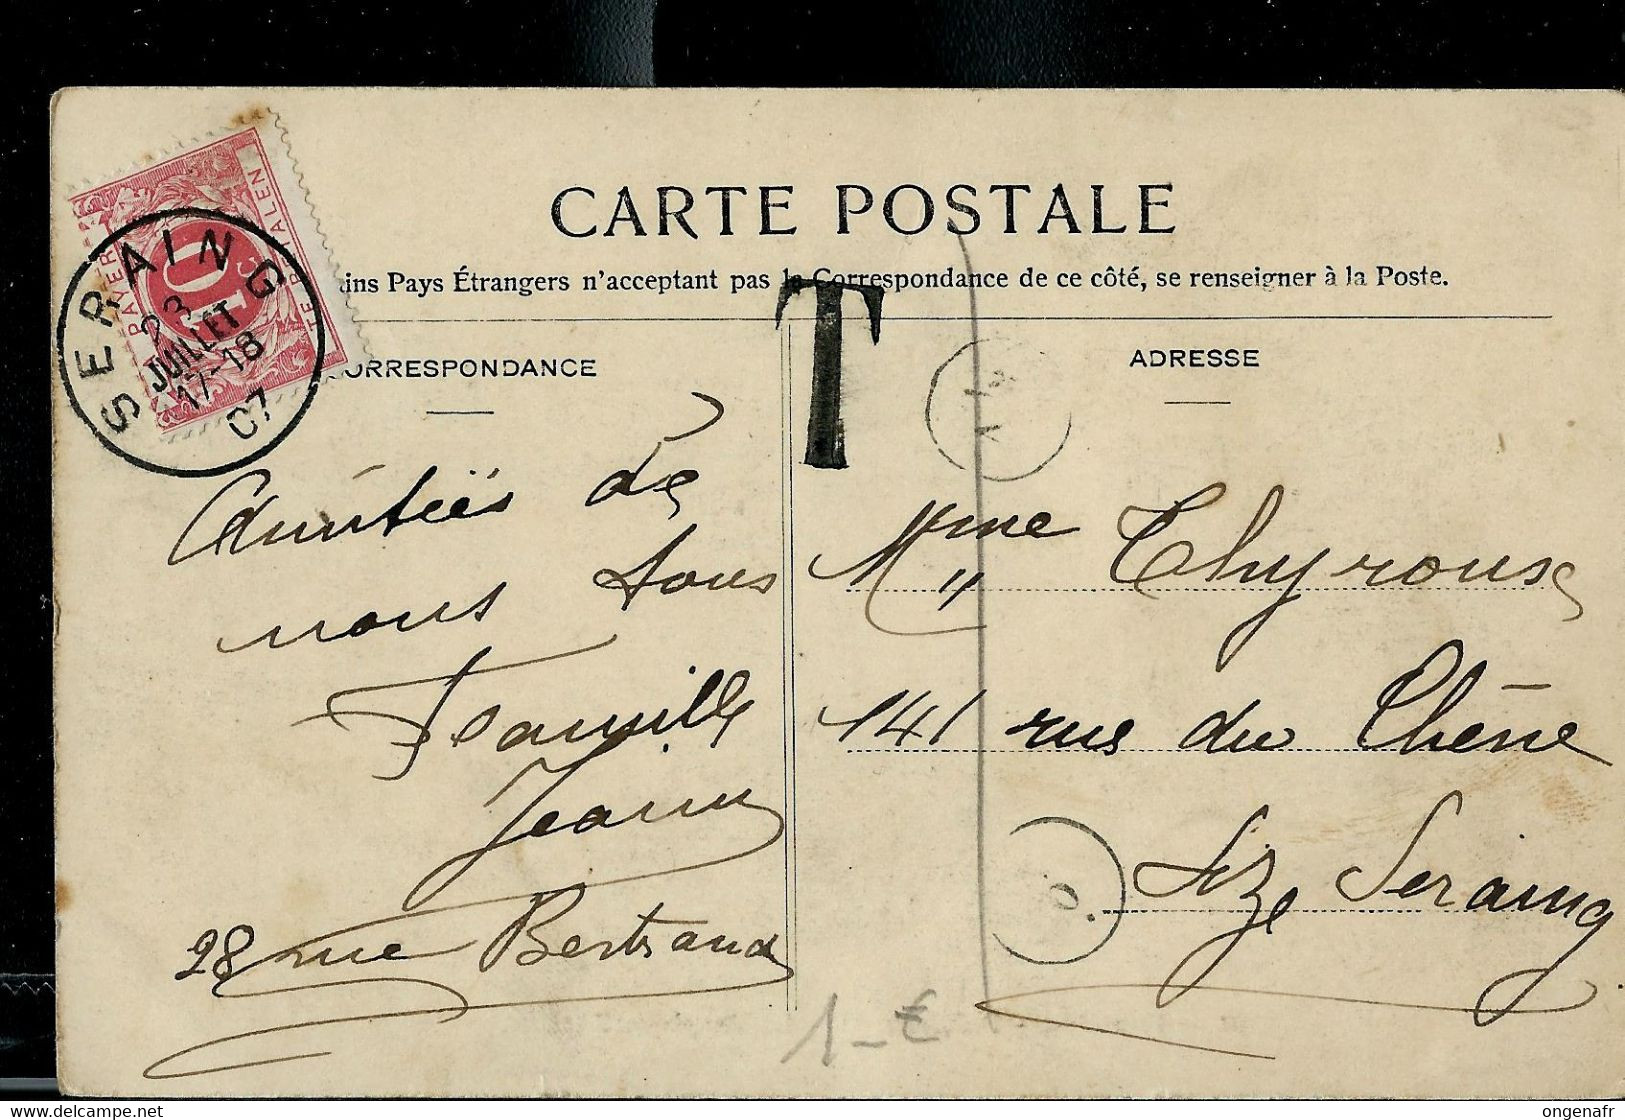 CARTE POSTALE
ins Pays Étrangers n'acceptant pas la Correspondance de ce côté, se renseigner à la Poste.
A PAYER
10 C.
TE BETALEN
SERAING
23
JUILLET
17-18
07
T
ORRESPONDANCE
Amitiées de
nous tous
Famille
Jeanne
28 rue Bertrand
ADRESSE
Mme Thyroux
141 rue du Chêne
Seraing
1-€
delcampe.net
ongenafr